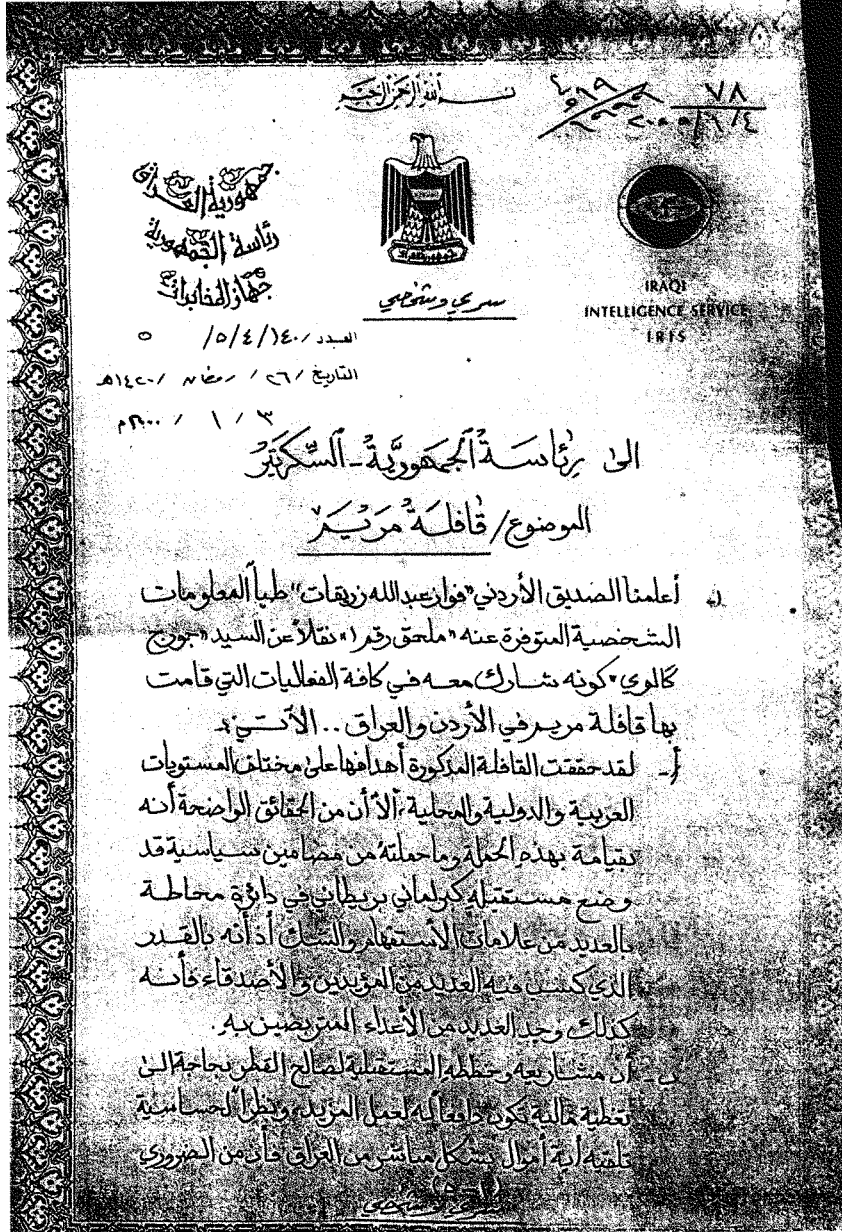 بسم الله الرحمن الرحيم
٧٨
٢٠٠٠/١/٤
جمهورية العراق
رئاسة الجمهورية
جهاز المخابرات
سري وشخصي
IRAQI
INTELLIGENCE SERVICE
IRIS
العدد /١٤٠/٤/٥/ ٥
التاريخ /٢٦/ رمضان / ١٤٢٠هـ
٣ / ١ / ٢٠٠٠م
الى رئاسة الجمهورية - السكرتير
الموضوع/ قافلة مريم
أعلمنا الصديق الأردني "فواز عبدالله زريقات" طياً المعلومات
الشخصية المتوفرة عنه "ملحق رقم ١" نقلاً عن السيد "جورج
كالوي" كونه شارك معه في كافة الفعاليات التي قامت
بها قافلة مريم في الأردن والعراق .. الآتي :-
أ- لقد حققت القافلة المذكورة أهدافها على مختلف المستويات
العربية والدولية والمحلية، ألا أن من الحقائق الواضحة أنه
بقيامة بهذه الحملة وما حملتة من مضامين سياسية قد
وضع مستقبله كبرلماني بريطاني في دائرة محاطة
بالعديد من علامات الأستفهام والشك أذ أنه بالقدر
الذي كسب فيه العديد من المؤيدين والأصدقاء فأنه
كذلك وجد العديد من الأعداء المتربصين به.
ب- أن مشاريعه وخططه المستقبلية لصالح القطر بحاجة الى
تغطية مالية تكون دافعاً له لعمل المزيد، ونظراً لحساسية
تلقيه أية أموال بشكل مباشر من العراق فأن من الضروري
(١-٥)
سري وشخصي